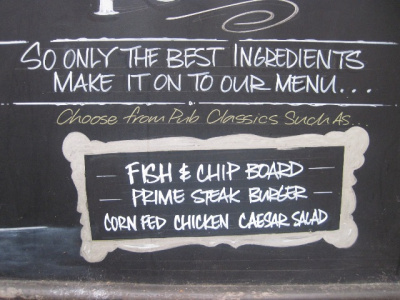 SO ONLY THE BEST INGREDIENTS
MAKE IT ON TO OUR MENU...
Choose from Pub Classics Such As...
FISH & CHIP BOARD
PRIME STEAK BURGER
CORN FED CHICKEN CAESAR SALAD